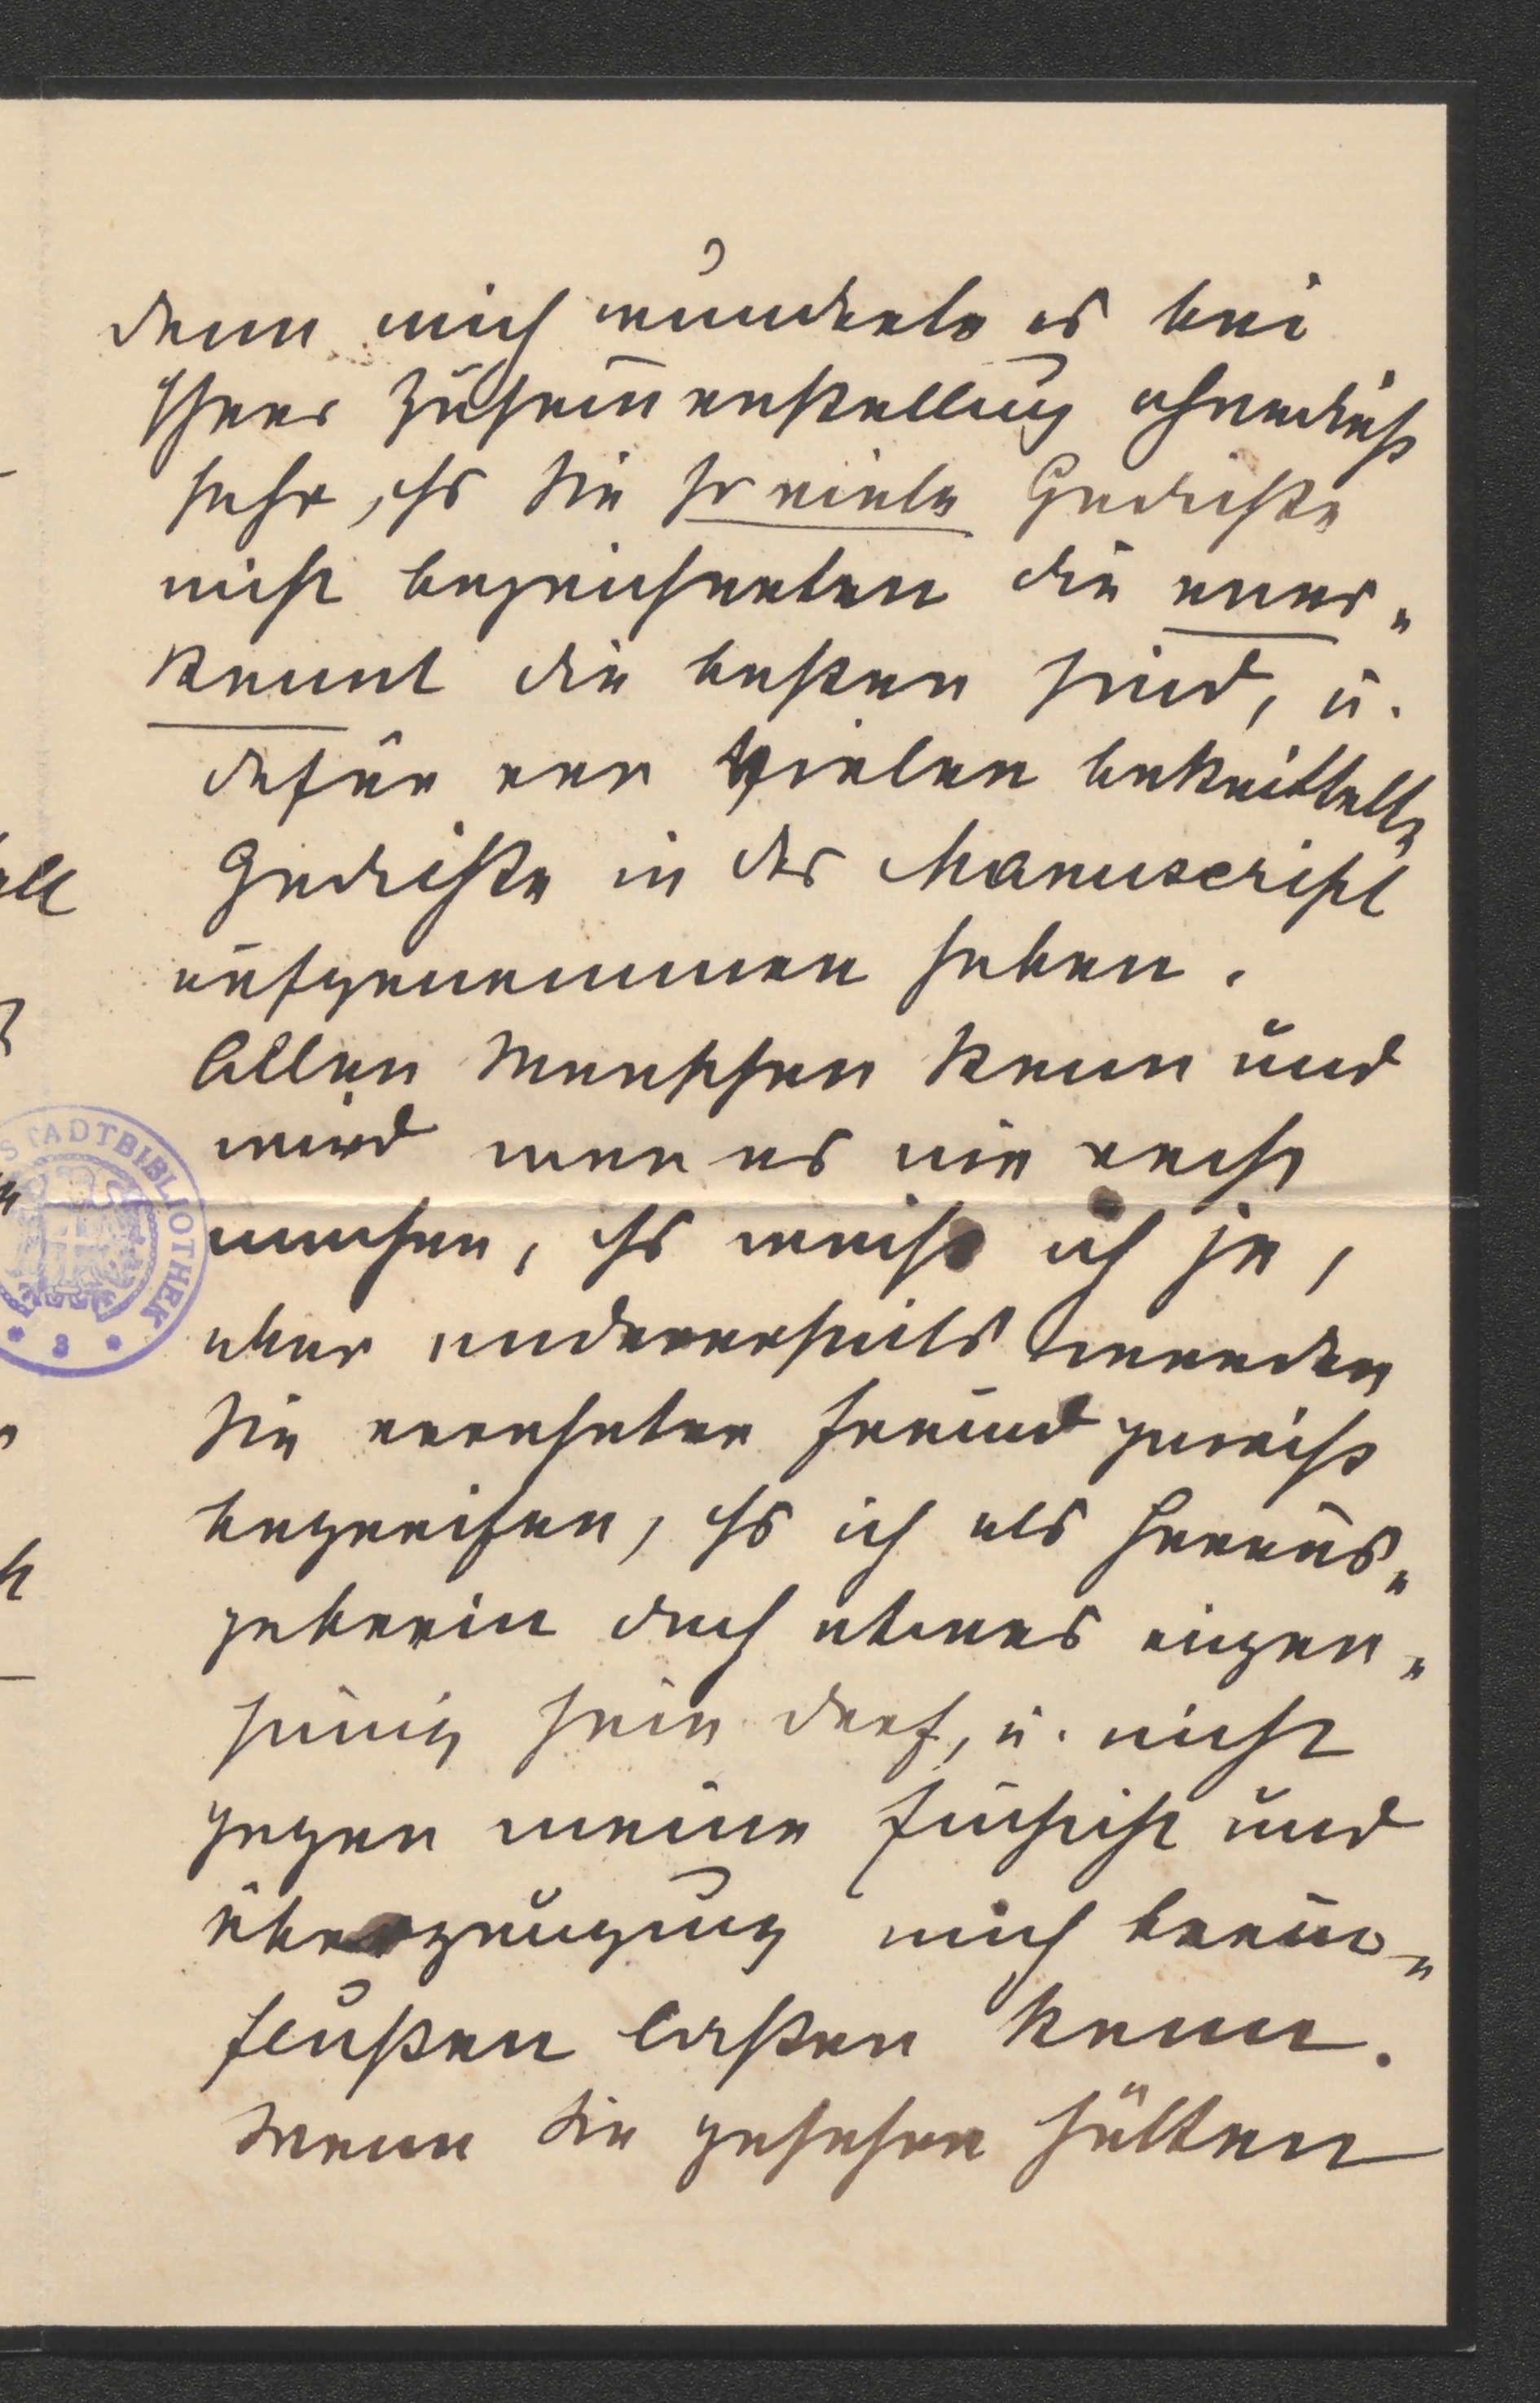 denn mich wunderte es bei
Ihrer Zusam̅enstellung ohnedieß
sehr, dß Sie so viele Gedichte
nicht bezeichneten die aner„
kannt die besten sind, u.
dafür von Vielen bekrittelte
Gedichte in das Manuscript
aufgenommen haben.
Allen Menschen kann und
wird man es nie recht
machen, dß weiß ich ja,
aber andererseits werden
Sie verehrter Freund gewiß
begreifen, dß ich als Heraus„
geberin doch etwas eigen„
sinnig sein darf, u. nicht
gegen meine Einsicht und
Überzeugung mich beein„
flußen laßen kann.
Wenn Sie gesehen hätten
STADTBIBLIOTHEK
* 3 *